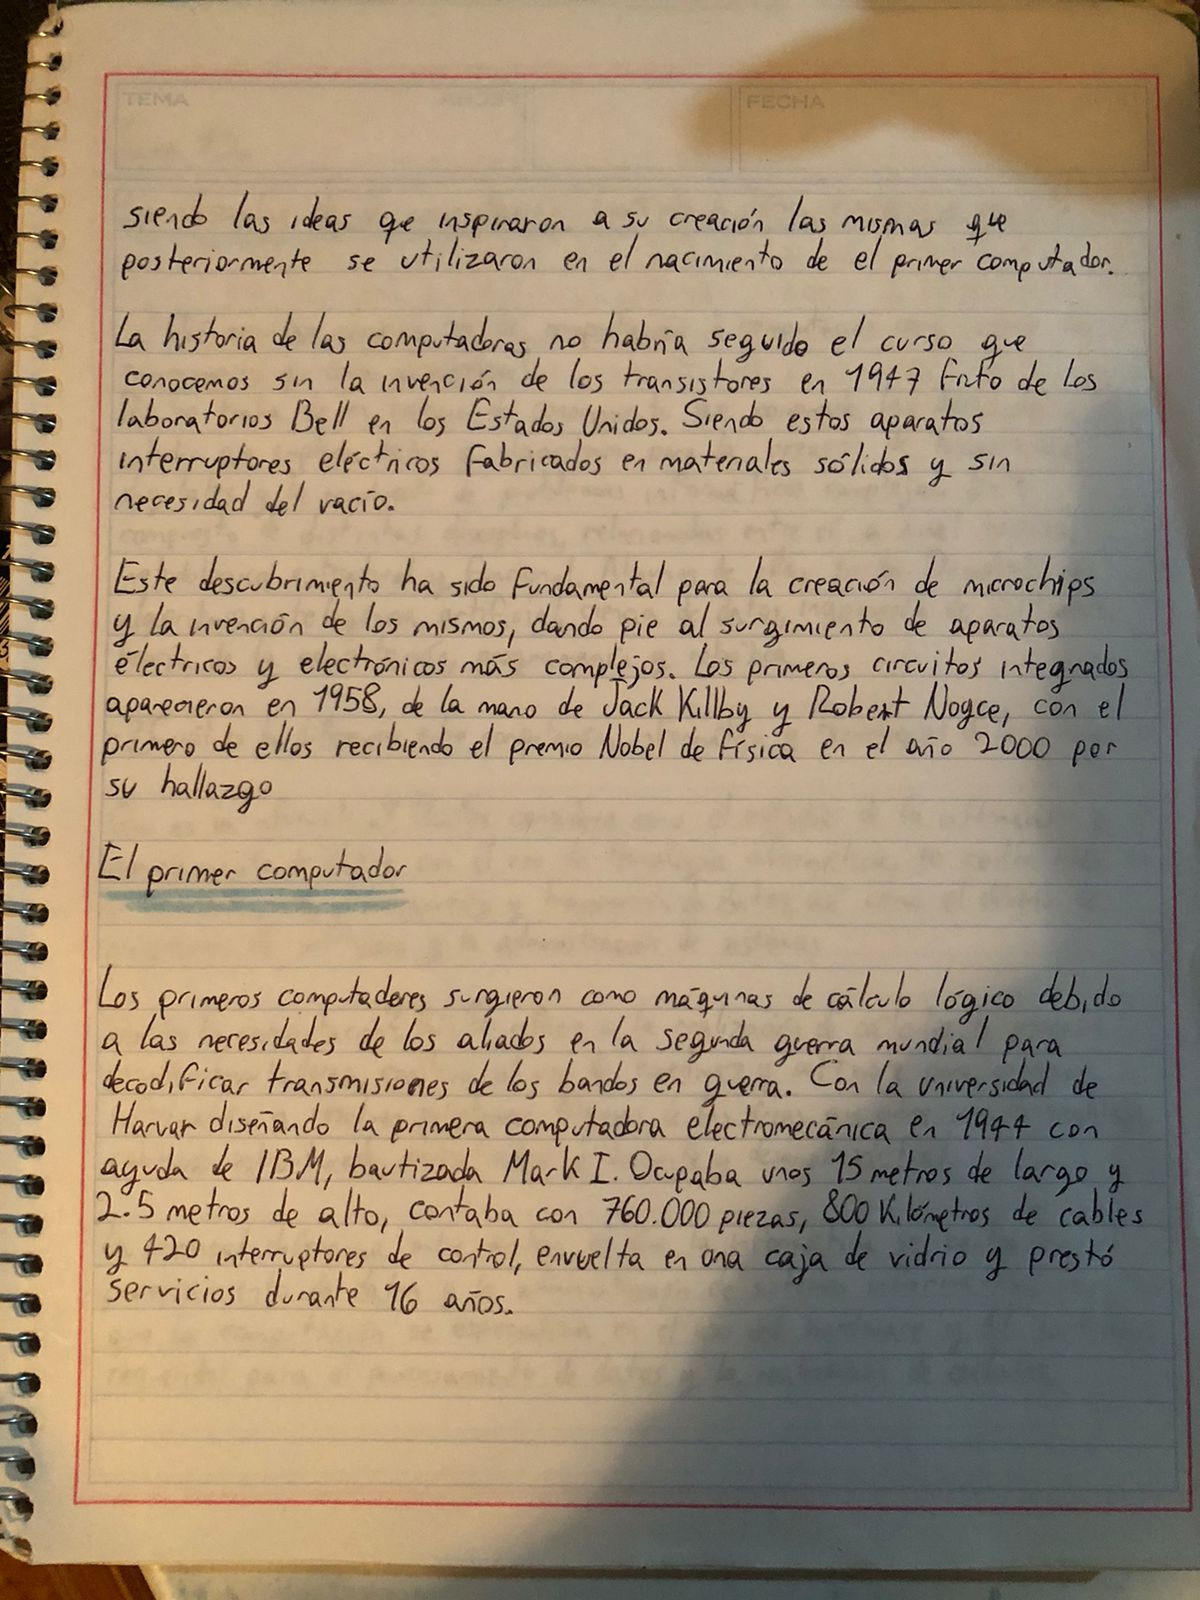 TEMA
FECHA
siendo las ideas que inspiraron a su creación las mismas que
posteriormente se utilizaron en el nacimiento de el primer computador.
La historia de las computadoras no habría seguido el curso que
conocemos sin la invención de los transistores en 1947 fruto de los
laboratorios Bell en los Estados Unidos. Siendo estos aparatos
interruptores eléctricos fabricados en materiales sólidos y sin
necesidad del vacío.
Este descubrimiento ha sido fundamental para la creación de microchips
y la invención de los mismos, dando pie al surgimiento de aparatos
électricos y electrónicos más complejos. Los primeros circuitos integrados
aparecieron en 1958, de la mano de Jack Killby y Robert Noyce, con el
primero de ellos recibiendo el premio Nobel de física en el año 2000 por
su hallazgo
El primer computador
Los primeros computadores surgieron como máquinas de cálculo lógico debido
a las necesidades de los aliados en la segunda guerra mundial para
decodificar transmisiones de los bandos en guerra. Con la universidad de
Harvar diseñando la primera computadora electromecánica en 1944 con
ayuda de IBM, bautizada Mark I. Ocupaba unos 15 metros de largo y
2.5 metros de alto, contaba con 760.000 piezas, 800 Kilómetros de cables
y 420 interruptores de control, envuelta en una caja de vidrio y prestó
servicios durante 16 años.